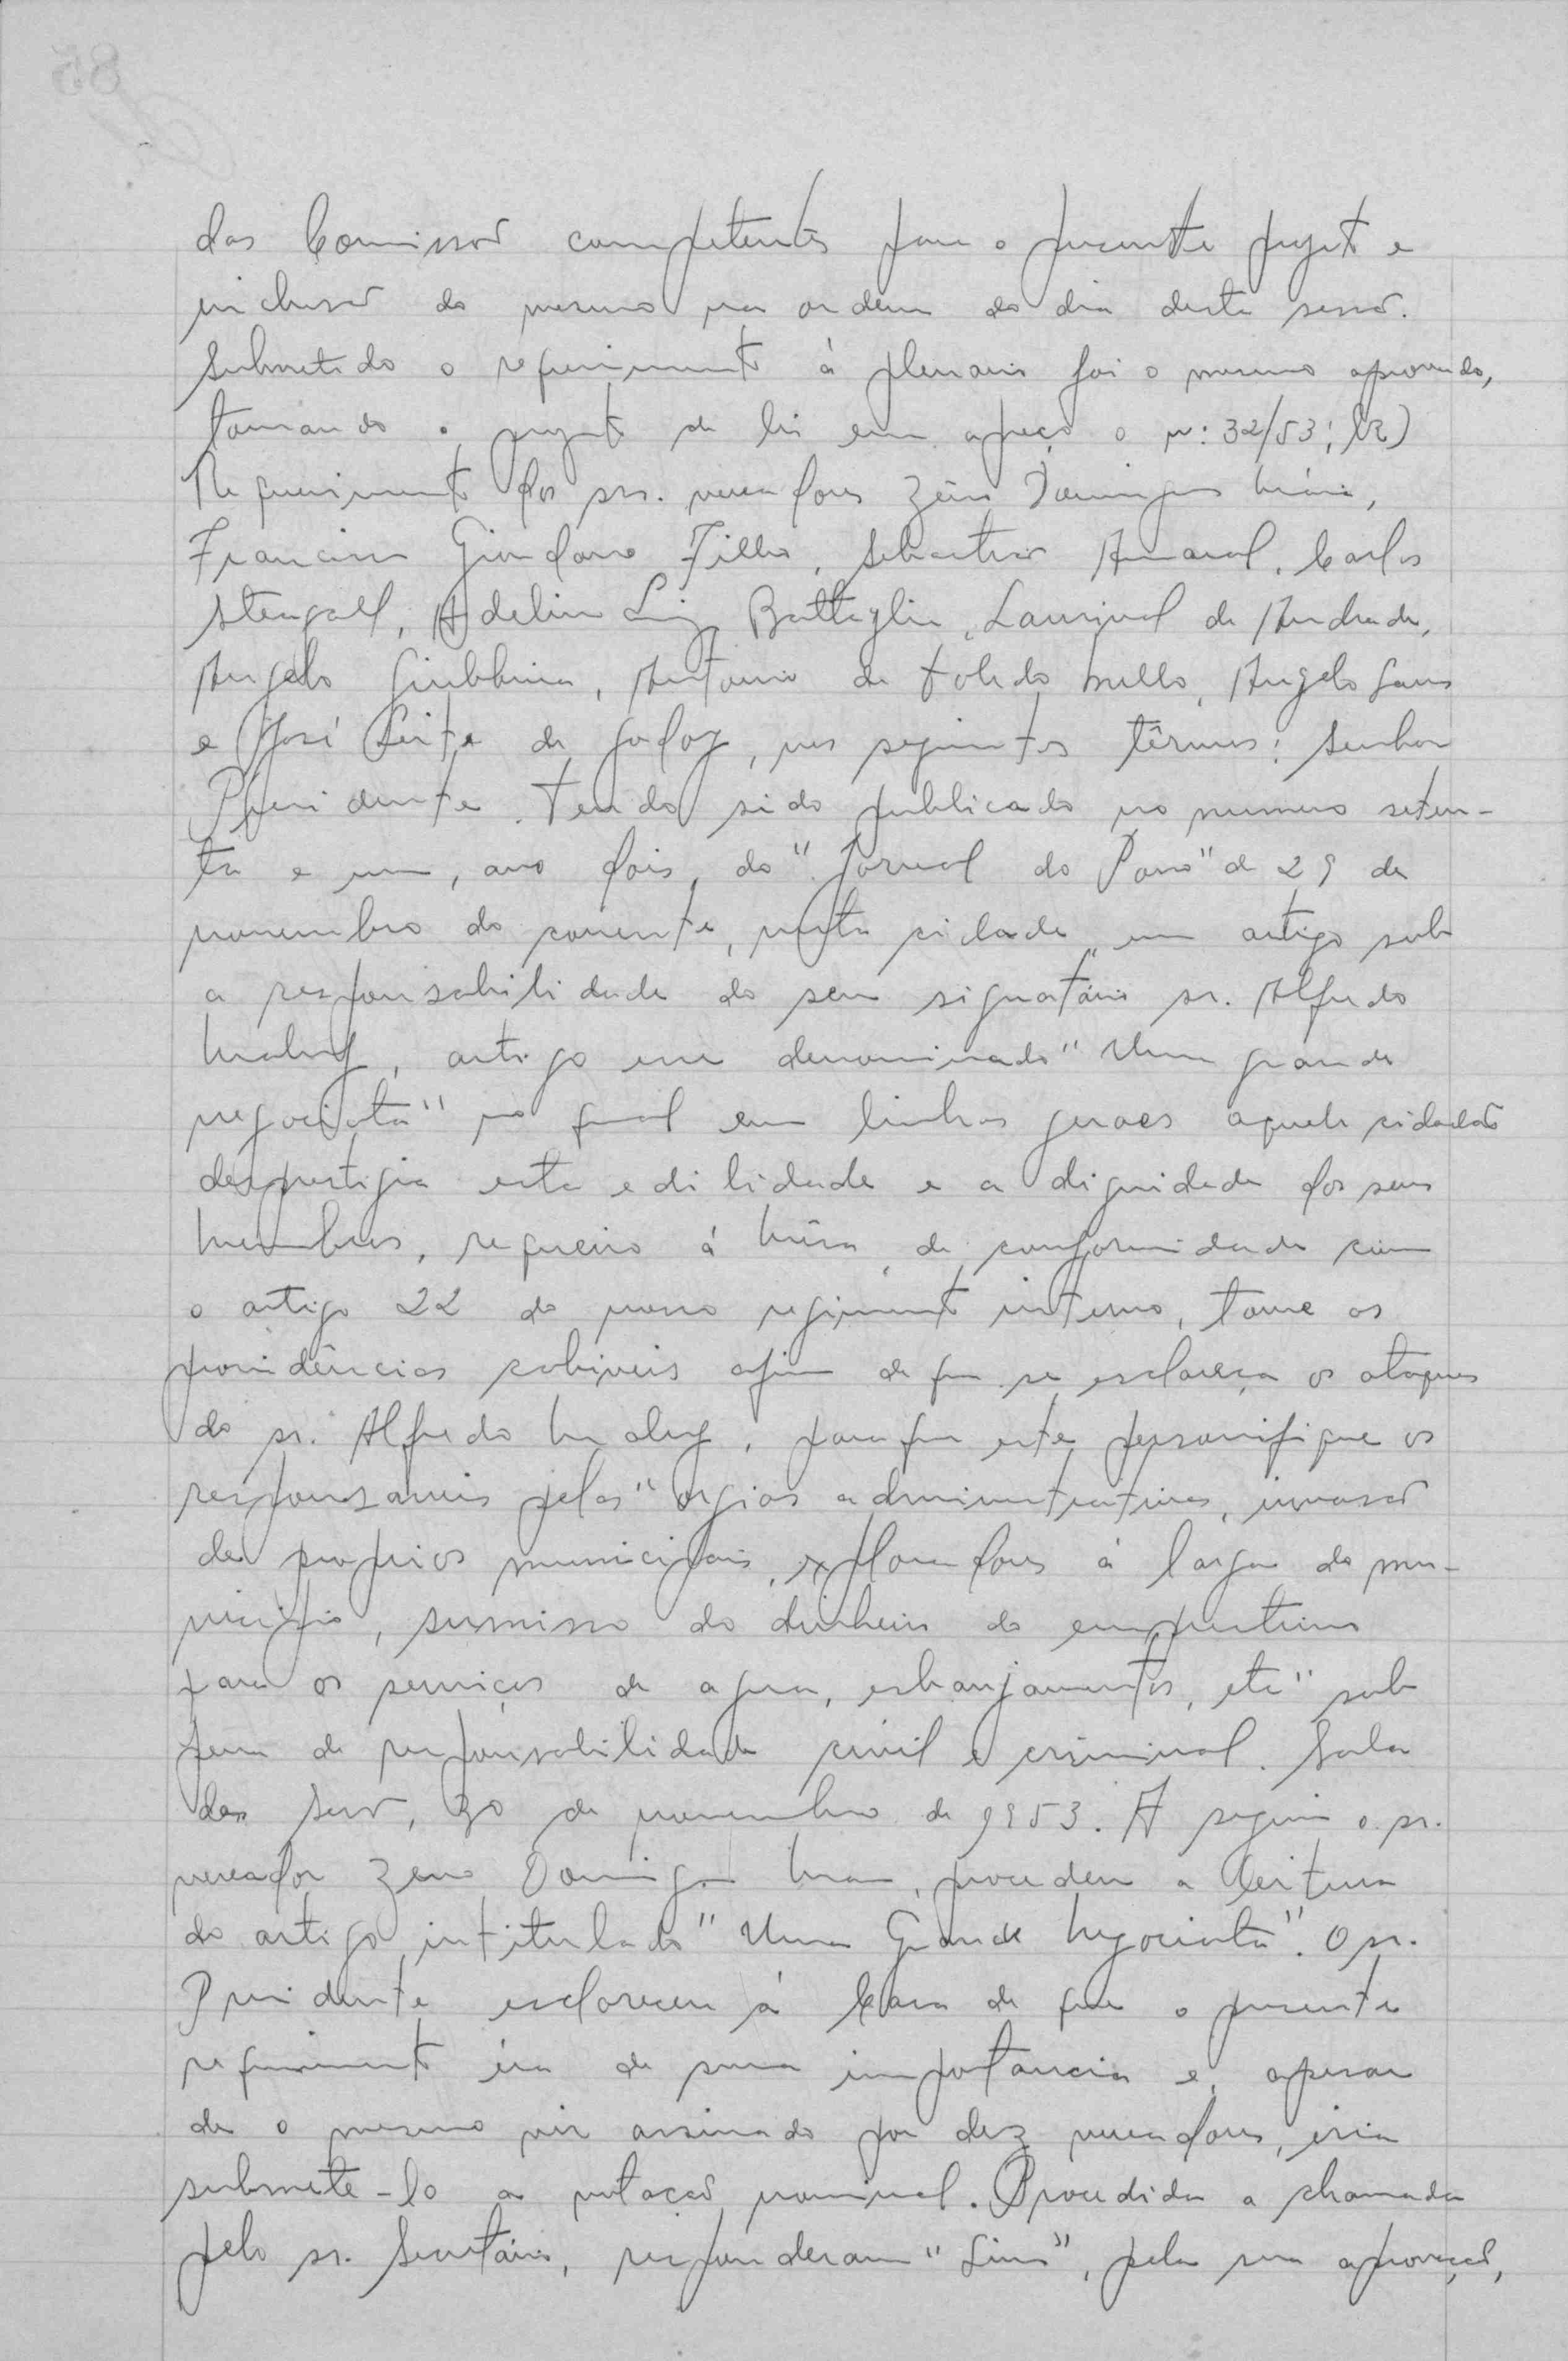 das Comissões competentes para o presente projeto e
inclusão do mesmo na ordem do dia desta sessão.
Submetido o requerimento à plenario foi o mesmo aprovado,
tomando o projeto de lei em apreço o nº: 32/53; (2)
Requerimento dos srs. vereadores Zêno Domingues Maia,
Francisco Giordano Filho, Sebastião Amaral, Carlos
Stengall, Adelino Luiz Battaglia, Laurival de Andrade,
Angelo Giubbina, Antonio de Toledo Mello, Angelo Gans
e José Leite de Godoy, nos seguintes têrmos: Senhor
Presidente. Tendo sido publicado no numero seten-
ta e um, ano dois, do "Jornal do Povo" de 29 de
novembro do corrente, nesta cidade, um artigo sob
a responsabilidade do seu signatário sr. Alfredo
artigo esse denominado "Uma grande
negociata" no qual em linhas geraes aquele cidadão
desprestigia esta edilidade e a dignidade dos seus
membros, requeiro á Mêsa, de conformidade com
o artigo 22 do nosso regimento interno, tome as
providências cabiveis afim de que se esclareça os ataques
do sr. Alfredo para que este personifique os
responsaveis pelas "orgias administrativas, invasão
de proprios municipais, exploradores á larga do mu-
nicipio, sumisso do dinheiro do emprestimo
para os serviços de agua, esbanjamentos, etc" sob
pena de responsabilidade civil e criminal. Sala
das Sessões, 30 de novembro de 1953. A seguir o sr.
vereador Zeno Domingues Maia, procedeu a leitura
do artigo intitulado "Uma Grande Negociata". O sr.
Presidente esclareceu á Casa de que o presente
requerimento éra de suma importancia e, apesar
de o mesmo vir assinado por dez vereadores, iria
submete-lo a votação nominal. Procedida a chamada
pelo sr. Secretário, responderam "Sim", pela sua aprovação,